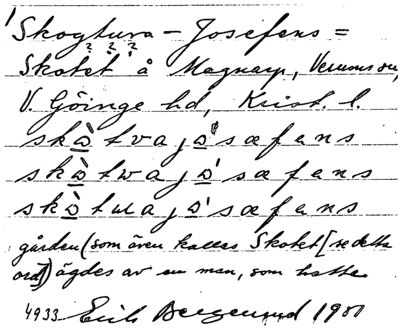 Skogtura - Josefens =
? ? ?
Skotet å Magnarp, Verums sn,
V. Göinge hd, Krist. l.
skòtvajo'sæfens
skòtwajo'sæfens
skòtuajo'sæfens
gården (som även kallas Skotet [se detta
ord]) ägdes av en man, som hette
4933 Erik 1980